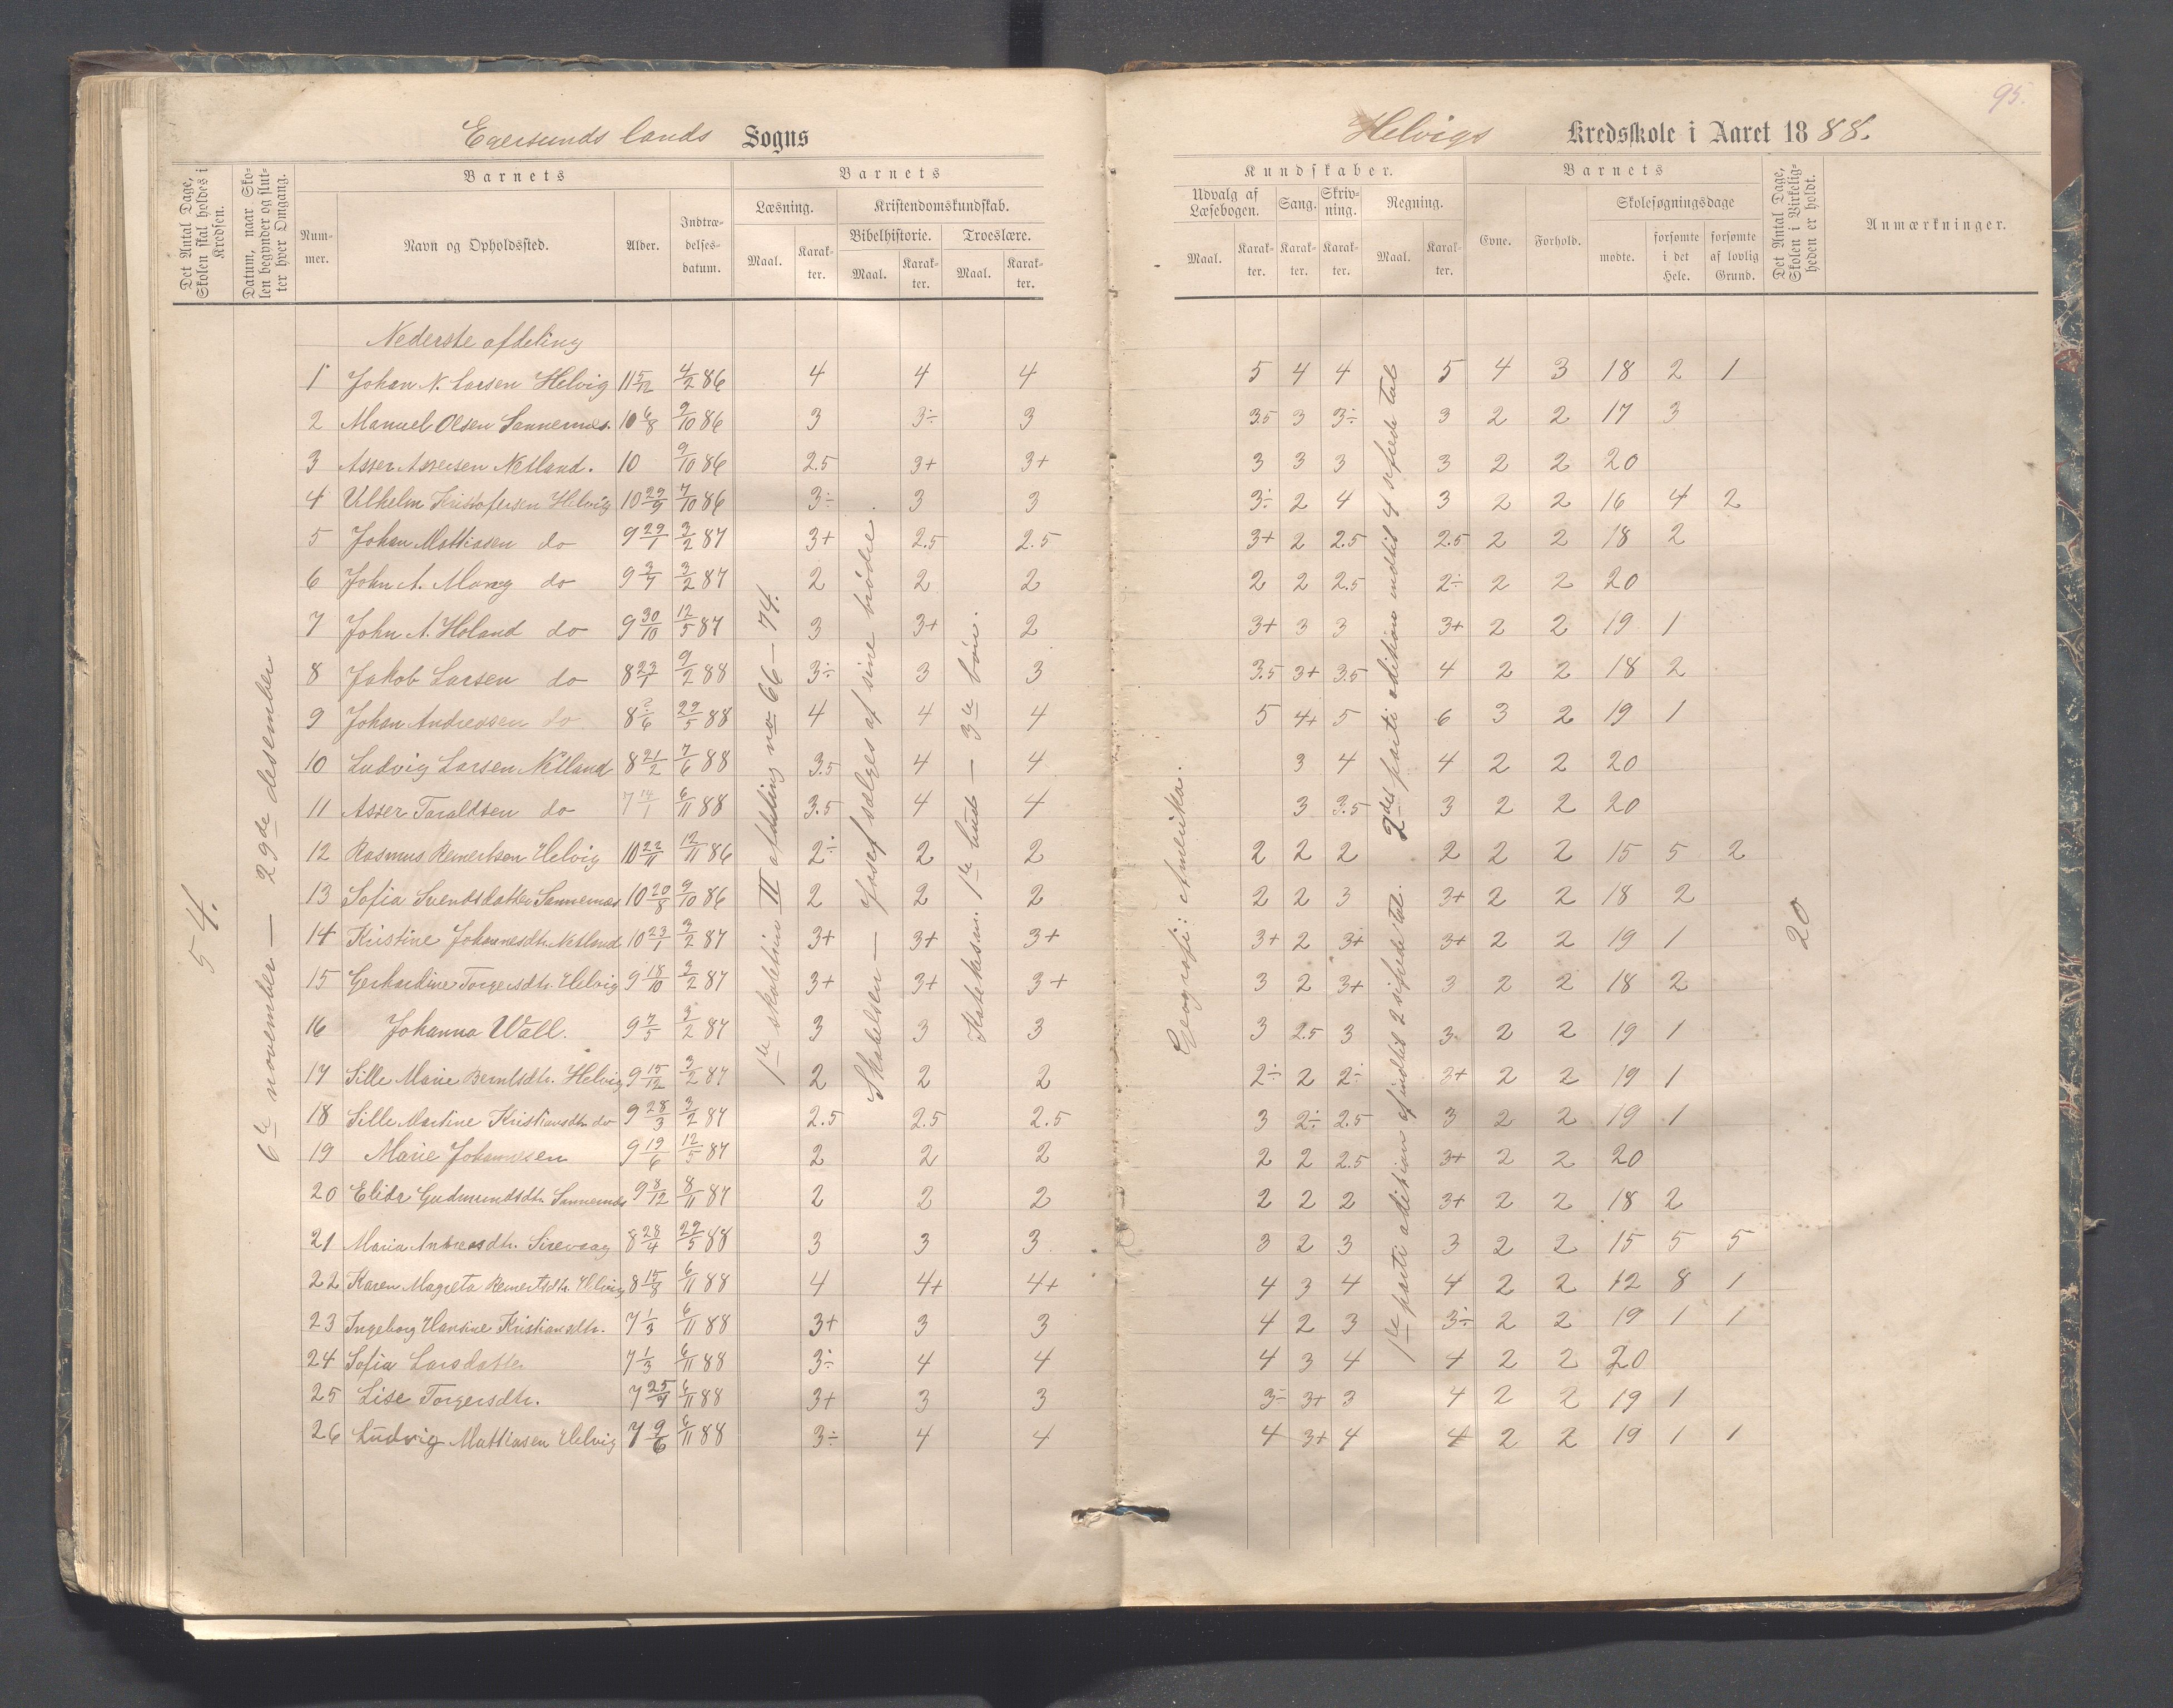 95.
Egersunds lands Sogns
Helvigs Kredsskole i Aaret 1888.
Det Antal Dage, Skolen skal holdes i Kredsen.
Datum, naar Skolen begynder og slutter hver Omgang.
Barnets
Nummer.
Navn og Opholdssted.
Alder.
Indtrædelsesdatum.
Barnets
Læsning.
Maal.
Karakter.
Kristendomskundskab.
Bibelhistorie.
Maal.
Karakter.
Troeslære.
Maal.
Karakter.
Kundskaber.
Udvalg af Læsebogen.
Maal.
Karakter.
Sang.
Karakter.
Skrivning.
Karakter.
Regning.
Maal.
Karakter.
Barnets
Evne.
Forhold.
Skolesøgningsdage
mødte.
forsømte i det Hele.
forsømte af lovlig Grund.
Det Antal Dage, Skolen i Virkeligheden er holdt.
Anmærkninger.
54.
6te november — 29de desember
1te skoletrin II afdeling no 66 – 74.
Skabelsen — Josef sælges af sine brødre
Katekism. 1te bud — 3te bøn.
Geografi: Amerika.
1te parti addition af indtil 2 sifrede tal.
2det parti addition indtil 4 sifrede tal
20
Nederste afdeling
1 Johan N. Larsen Helvig 11 5/12 4/2 86 4 4 4 5 4 4 5 4 3 18 2 1
2 Manuel Olsen Sannernes. 10 6/8 9/10 86 3 3÷ 3 3.5 3 3÷ 3 2 2 17 3
3 Asser Assersen Netland. 10 9/10 86 2.5 3+ 3+ 3 3 3 3 2 2 20
4 Vilhelm Kristofersen Helvig 10 29/9 7/10 86 3÷ 3 3 3÷ 2 4 3 2 2 16 4 2
5 Johan Mattiasen do 9 29/1 3/2 87 3+ 2.5 2.5 3+ 2 2.5 2.5 2 2 18 2
6 John A. Mong do 9 3/7 3/2 87 2 2 2 2 2 2.5 2÷ 2 2 20
7 John A. Holand do 9 30/10 12/5 87 3 3+ 2 3+ 3 3 3+ 2 2 19 1
8 Jakob Larsen do 8 27/1 9/2 88 3÷ 3 3 3.5 3+ 3.5 4 2 2 18 2
9 Johan Andreasen do 8 2/6 29/5 88 4 4 4 5 4+ 5 6 3 2 19 1
10 Ludvig Larsen Netland 8 21/2 7/6 88 3.5 4 4 3 4 4 2 2 20
11 Asser Taraldsen do 7 14/1 6/11 88 3.5 4 4 3 3.5 3 2 2 20
12 Rasmus Reinertsen Helvig 10 22/11 12/11 86 2÷ 2 2 2 2 2 2 2 2 15 5 2
13 Sofia Svendsdatter Sannernes 10 20/8 9/10 86 2 2 2 2 2 3 3+ 2 2 18 2
14 Kristine Johannesdtr. Netland 10 23/1 3/2 87 3+ 3+ 3+ 3+ 2 3+ 3+ 2 2 19 1
15 Gerhardine Torgersdtr. Helvig 9 18/10 3/2 87 3+ 3+ 3+ 3 2 3+ 3 2 2 18 2
16 Johanna Wall. 9 7/5 3/2 87 3 3 3 3 2.5 3 3 2 2 19 1
17 Sille Marie Berntsdtr. Helvig 9 15/12 3/2 87 2 2 2 2÷ 2 2÷ 3+ 2 2 19 1
18 Sille Martine Kristiansdtr. do 9 28/3 3/2 87 2.5 2.5 2.5 3 2÷ 2.5 3 2 2 19 1
19 Marie Johannesen 9 19/6 12/5 87 2 2 2 2 2 2.5 3+ 2 2 20
20 Elida Gudmundsdtr. Sannernes 9 8/12 8/11 87 2 2 2 2 2 2 3+ 2 2 18 2
21 Maria Andreasdtr. Sirevaag 8 28/4 29/5 88 3 3 3 3 2 3 3 2 2 15 5 5
22 Karen Magreta Reinertsdtr. Helvig 8 15/8 6/11 88 4 4+ 4+ 4 3 4 4 2 2 12 8 1
23 Ingeborg Hansine Kristiansdtr. 7 1/3 6/11 88 3+ 3 3 4 2 3 3÷ 2 2 19 1 1
24 Sofia Larsdatter 7 1/3 6/11 88 3÷ 4 4 4 3 4 4 2 2 20
25 Lise Torgersdtr. 7 25/9 6/11 88 3+ 3 3 3÷ 3+ 3 4 2 2 19 1
26 Ludvig Mattiasen Helvig 7 9/6 6/11 88 3÷ 4 4 4 3+ 4 4 2 2 19 1 1